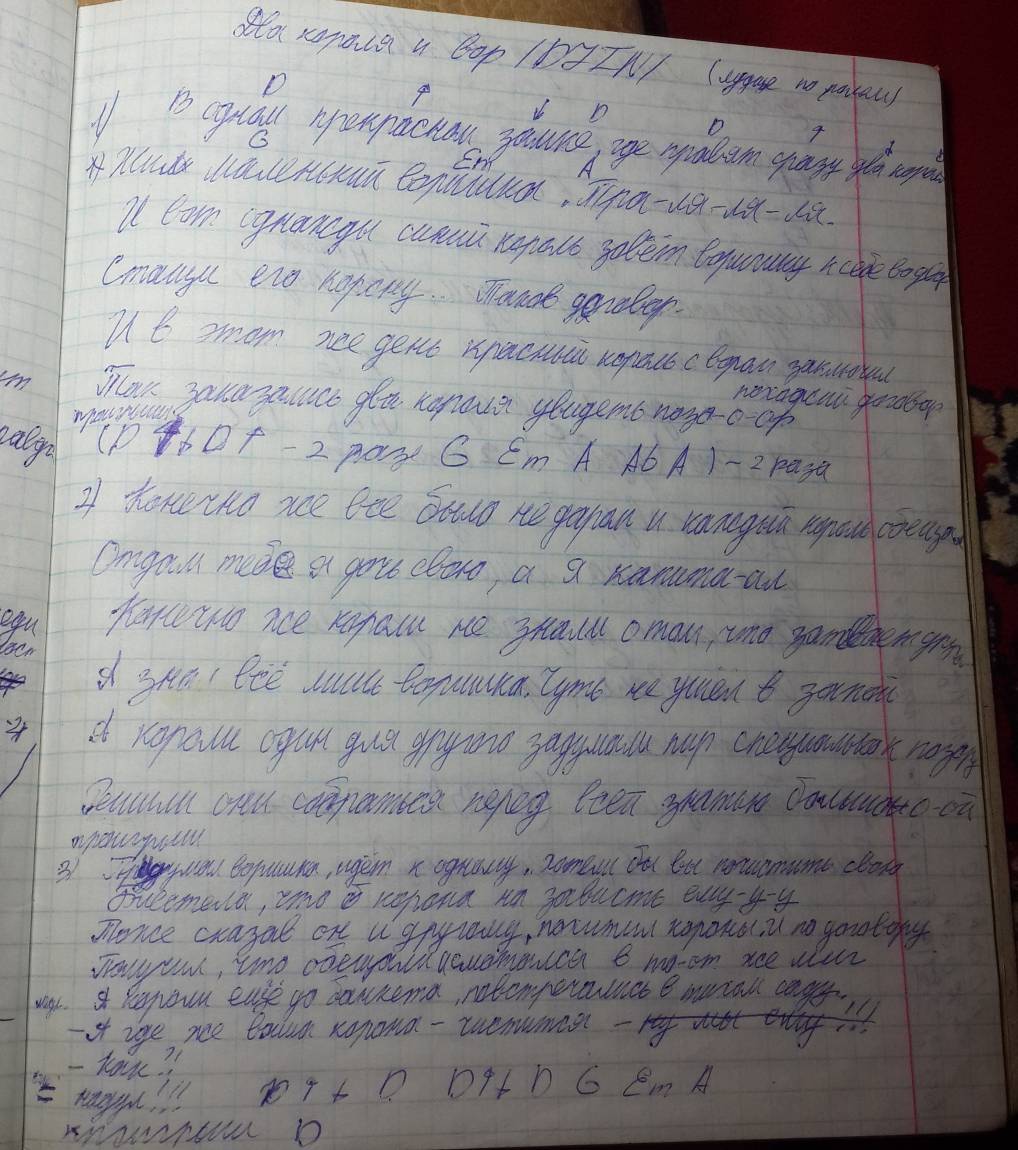 Два короля и вор /DJIN/ (лучше по ролям)
D ↑ ↓ D D ↑ ↓ D
1) В одном прекрасном замке, где правят сразу два короля
G Em A
Жил маленький воришка. Тра-ля-ля-ля.
И вот однажды синий король зовёт воришку к себе во двор
Стащи его корону.. Таков договор.
И в этот же день красный король с вором заключил
похожий договор
Так заказались два короля увидеть позо-о-ор
проигрыш
(D ↑ + D ↑ - 2 раза G Em A Ab A) - 2 раза
2) Конечно же всё было не даром и каждый король обещал
Отдам тебе я дочь свою, а я капита-ал
Конечно же короли не знали о том, что затевает другой
А знал всё лишь воришка. Чуть не ушёл в запой
А короли один для другого задумали пир специально к позору
Решили они собраться перед всей знатью большо-о-ой
проигрыш
3) Придумал воришка, идёт к одному. Хотели бы вы почистить свою
Блестела, что б корона на зависть ему-у-у
Тоже сказав он и другому, похитил короны и по договору
Получил, что обещали и смотался в то-от же миг
А короли ещё до банкета, повстречались в тихом саду.
- А где же ваша корона - чистится - ну мы ему!!!
- Как?!
надул!!! D ↑ + D D ↑ + D G Em A
проигрыш D